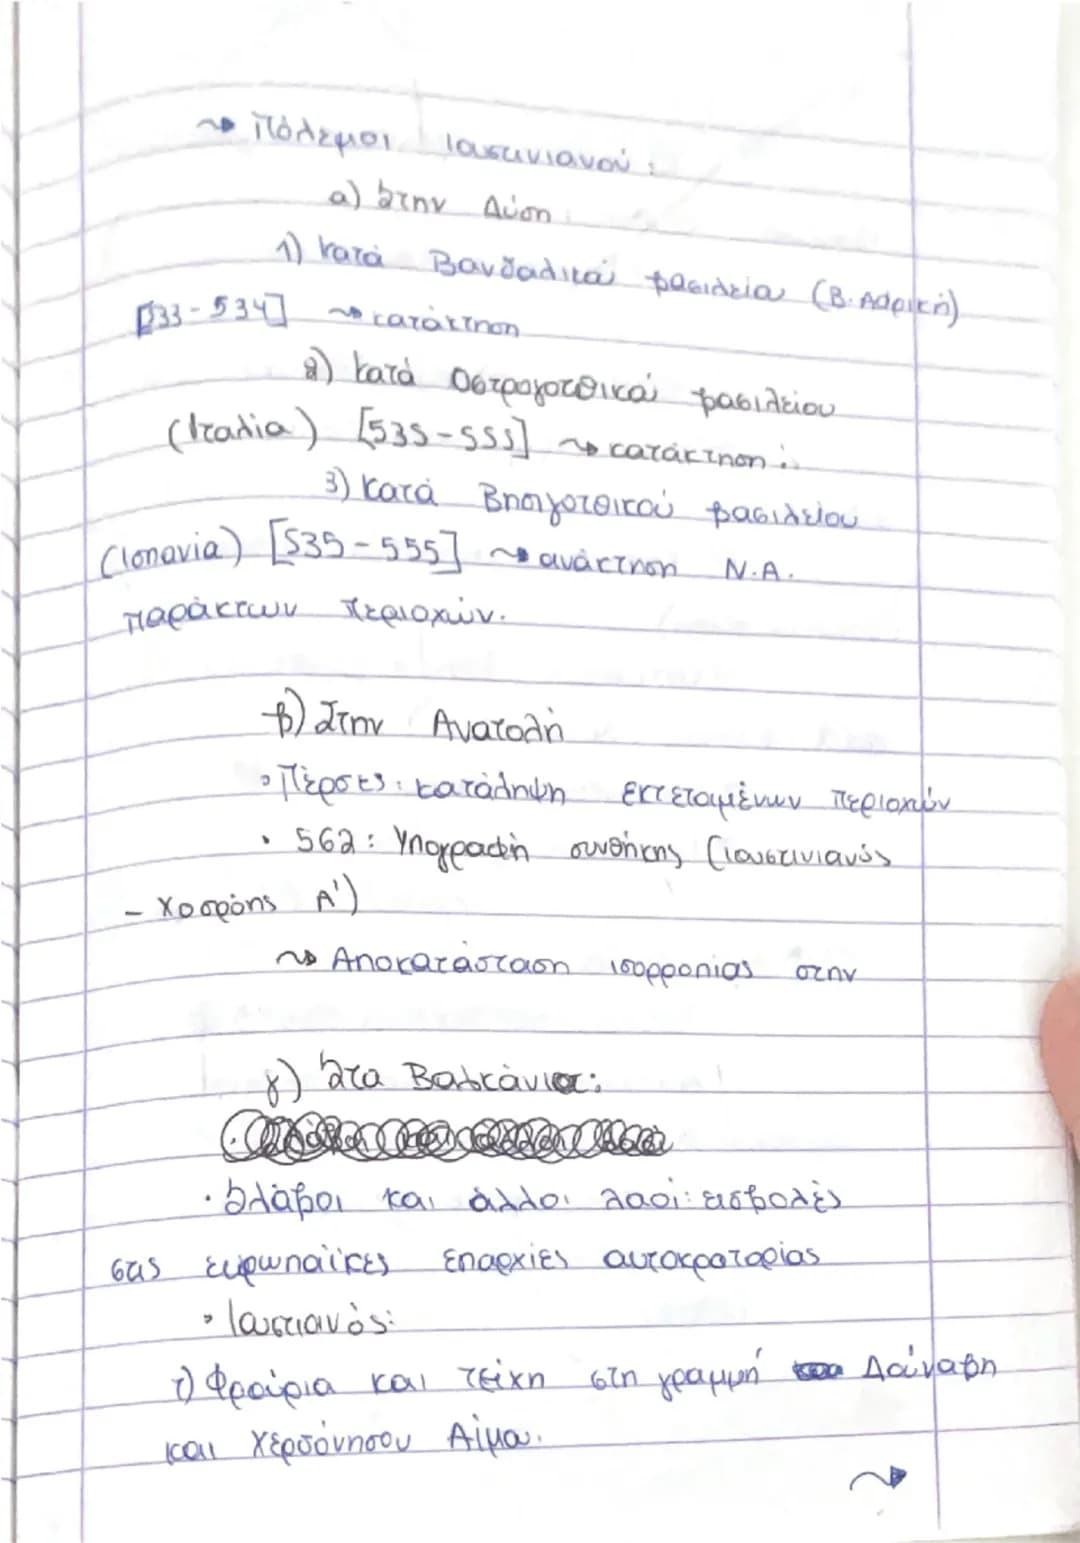 ~> Πόλεμοι Ιουστινιανού:
a) Στην Δύση
1) Κατά Βανδαλικού βασιλεία (Β. Αφρική)
[533-534] ~> κατάκτηση
2) Κατά Οστρογοτθικού βασιλείου
(Ιταλία) [535-555] ~> κατάκτηση :.
3) Κατά Βησιγοτθικού βασιλείου
(Ισπανία) [535-555] ~> ανάκτηση Ν.Α.
παράκτιων περιοχών.
β) Στην Ανατολή
• Πέρσες: κατάληψη εκτεταμένων περιοχών
• 562: Υπογραφή συνθήκης (Ιουστινιανός
- Χοσρόης Α')
~> Αποκατάσταση ισορροπίας στην
γ) Στα Βαλκάνια:
• Σλάβοι και άλλοι λαοί: εισβολές
στις ευρωπαϊκές επαρχίες αυτοκρατορίας
• Ιουστιανός:
1) Φρούρια και τείχη στη γραμμή Δούναβη
και Χερσόνησου Αίμου.
~>